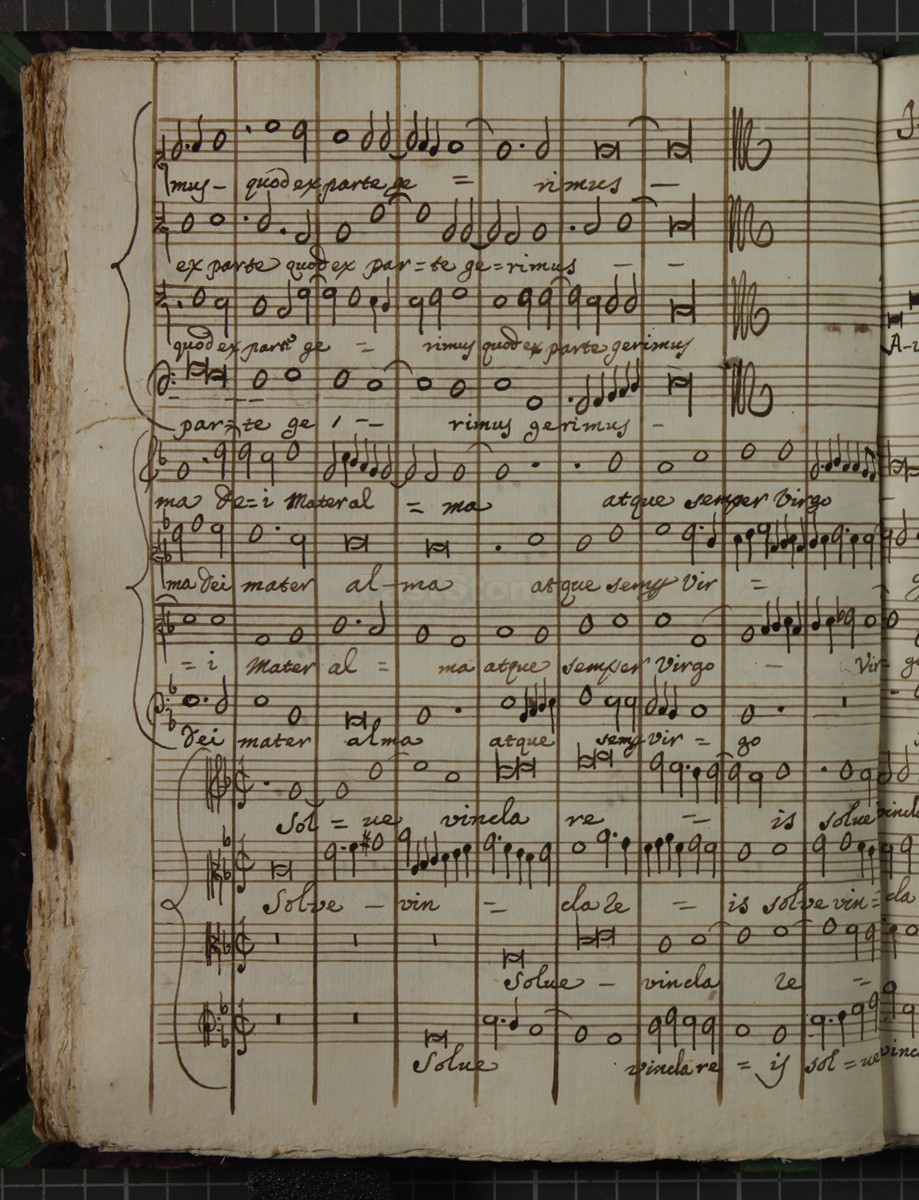 mus- quod ex parte ge = rimus —
ex parte quod ex par=te ge=rimus - -
quod ex parte ge = rimus quod ex parte gerimus
par=te ge - - rimus gerimus -
ma de=i Mater al = ma atque semper Virgo
ma Dei mater al-ma atque Vir =
=i Mater al = ma atque semper Virgo - Vir=
Dei mater alma atque Vir = go
Sol = ue vincla re = is solue
Solve - vin = cla re = is solve vin=cla
Solue - vincla re =
Solue vincla re = is sol=ue